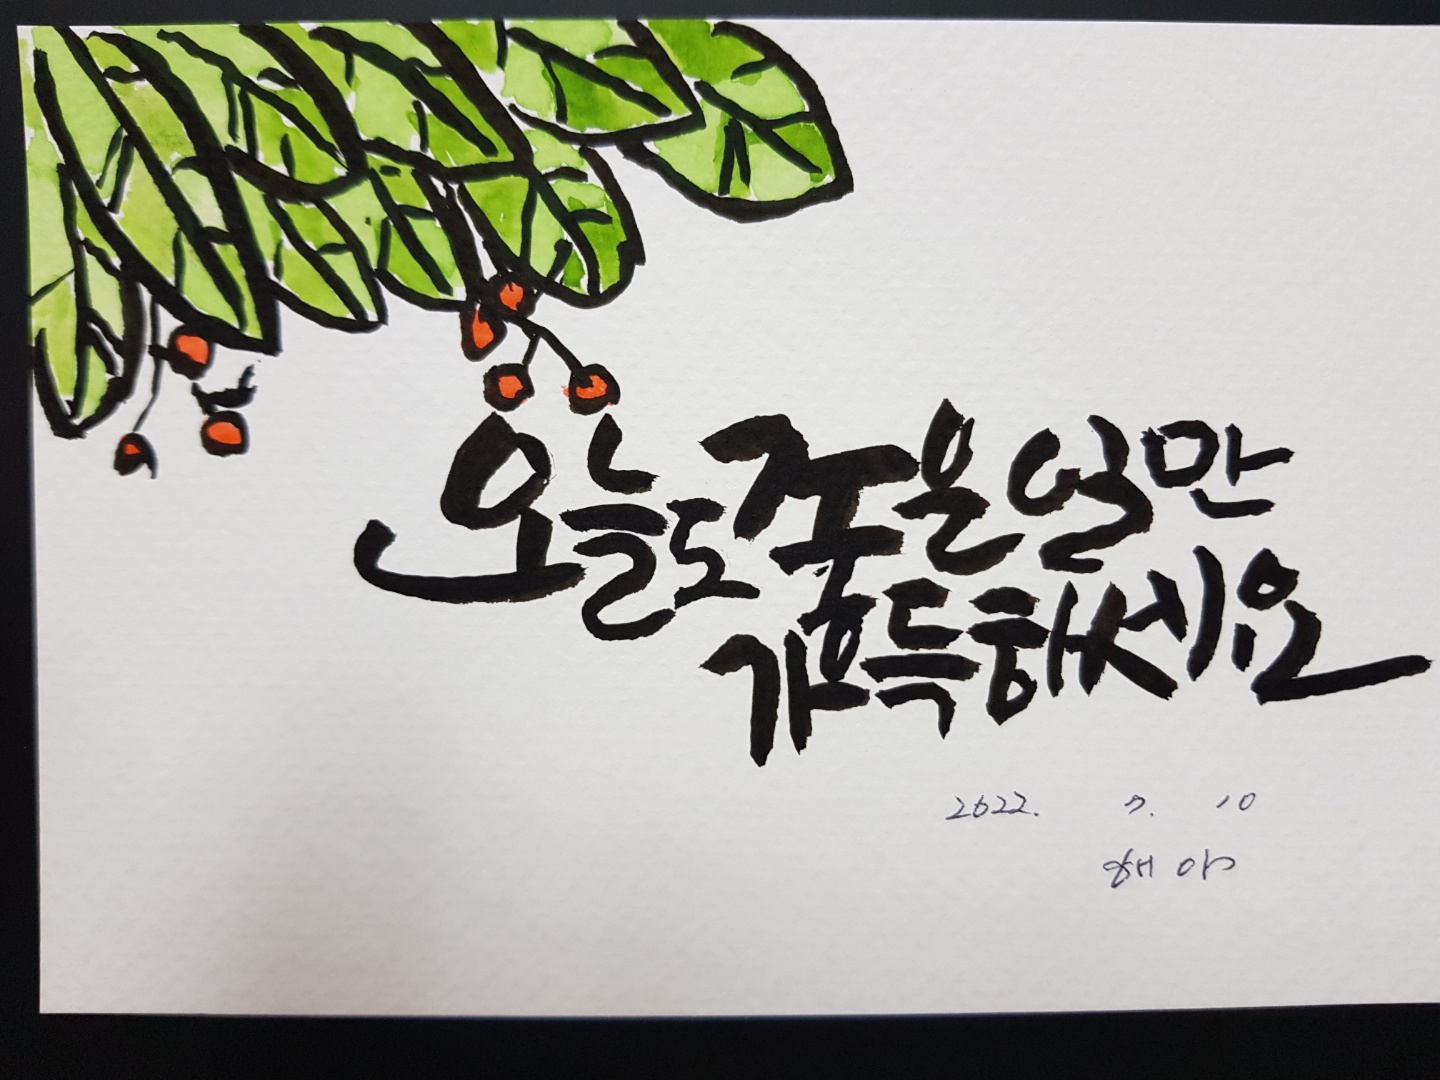 오늘도 좋은 일만
가득하세요
2022. 7. 10
해야